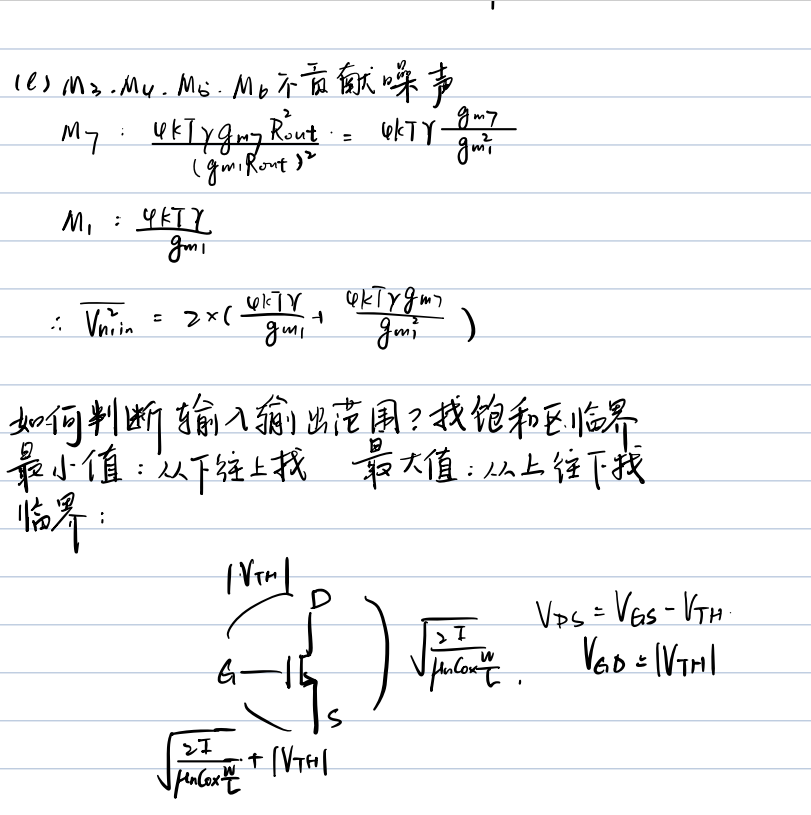 (e) M3.M4.M5.M6不贡献噪声
M7: 4kTγgm7Rout²/(gm1Rout)² = 4kTγ gm7/gm1²
M1: 4kTγ/gm1
∴ V²n,in = 2×(4kTγ/gm1 + 4kTγgm7/gm1²)
如何判断输入输出范围?找饱和区临界
最小值:从下往上找 最大值:从上往下找
临界:
|VTH|
D
G
S
√(2I/μnCox W/L)
VDS = VGS - VTH.
VGD = |VTH|
√(2I/μnCox W/L) + |VTH|